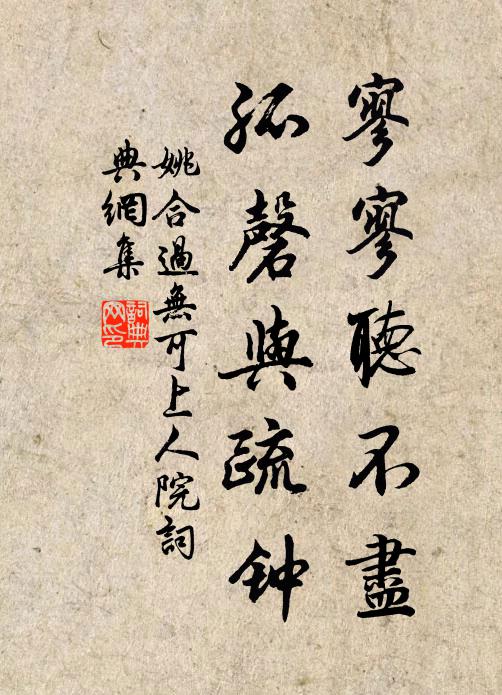 寥寥聽不盡
孤磬與疏钟
姚合過無可上人院詞
典網集
詞典
网印